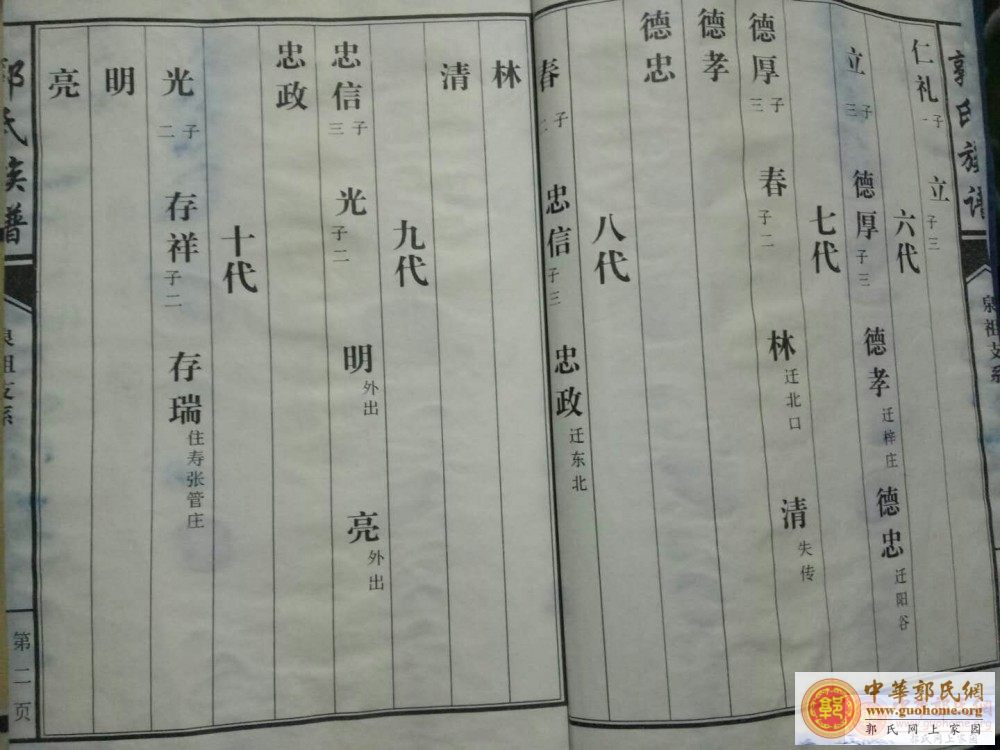 郭氏族谱
泉祖支系
仁礼 子一 立 子三
六代
立 子三 德厚 子三 德孝 迁梓庄 德忠 迁阳谷
七代
德厚 子三 春 子二 林 迁北口 清 失传
德孝
德忠
八代
春 子二 忠信 子三 忠政 迁东北
林
清
九代
忠信 子三 光 子二 明 外出 亮 外出
忠政
十代
光 子二 存祥 子二 存瑞 住寿张管庄
明
亮
郭氏族谱
泉祖支系
第二页
中華郭氏網
www.guohome.org
郭氏网上家园